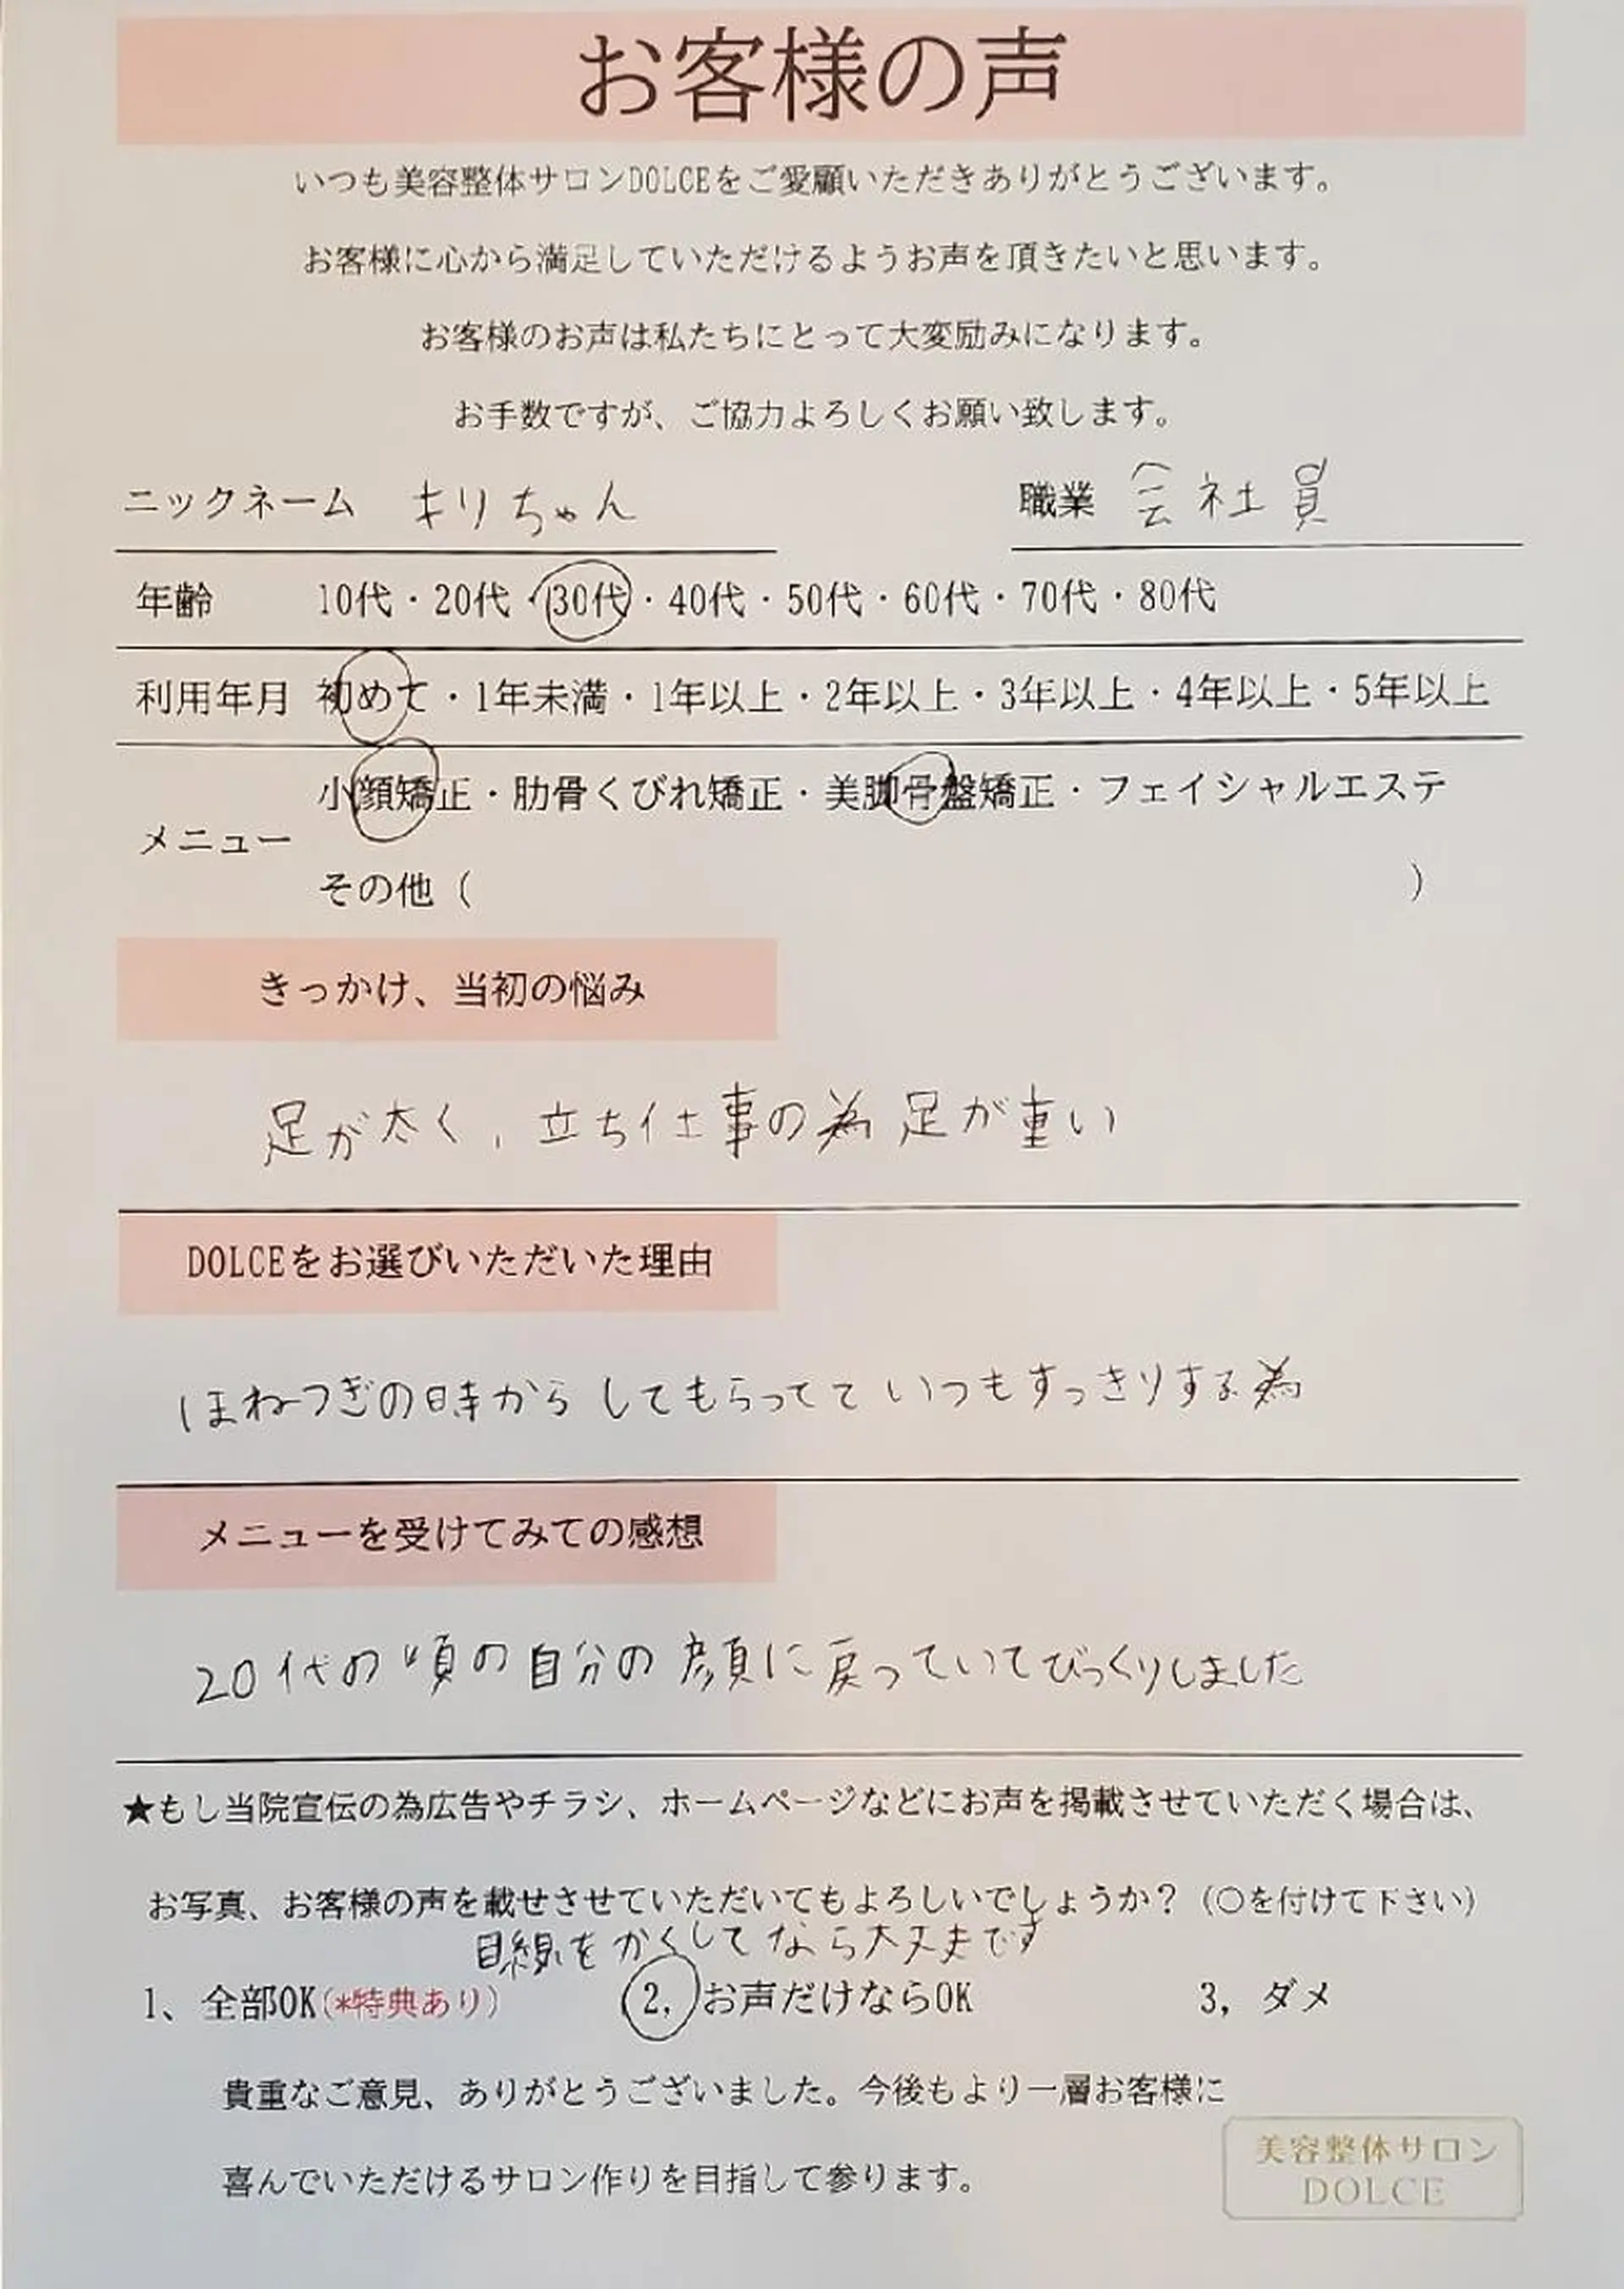 お客様の声
いつも美容整体サロンDOLCEをご愛顧いただきありがとうございます。
お客様に心から満足していただけるようお声を頂きたいと思います。
お客様のお声は私たちにとって大変励みになります。
お手数ですが、ご協力よろしくお願い致します。
ニックネーム キリちゃん 職業 会社員
年齢 10代・20代・30代・40代・50代・60代・70代・80代
利用年月 初めて・1年未満・1年以上・2年以上・3年以上・4年以上・5年以上
小顔矯正・肋骨くびれ矯正・美脚骨盤矯正・フェイシャルエステ
メニュー
その他（ ）
きっかけ、当初の悩み
足が太く、立ち仕事の為足が重い
DOLCEをお選びいただいた理由
ほねつぎの時からしてもらってていつもすっきりする為
メニューを受けてみての感想
20代の頃の自分の顔に戻っていてびっくりしました
★もし当院宣伝の為広告やチラシ、ホームページなどにお声を掲載させていただく場合は、
お写真、お客様の声を載せさせていただいてもよろしいでしょうか？（○を付けて下さい）
目線をかくしてなら大丈夫です
1、全部OK(*特典あり) 2,お声だけならOK 3, ダメ
貴重なご意見、ありがとうございました。今後もより一層お客様に
喜んでいただけるサロン作りを目指して参ります。
美容整体サロン
DOLCE